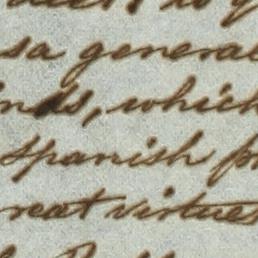 sa general
nds, which
Spanish pr
reat virtues